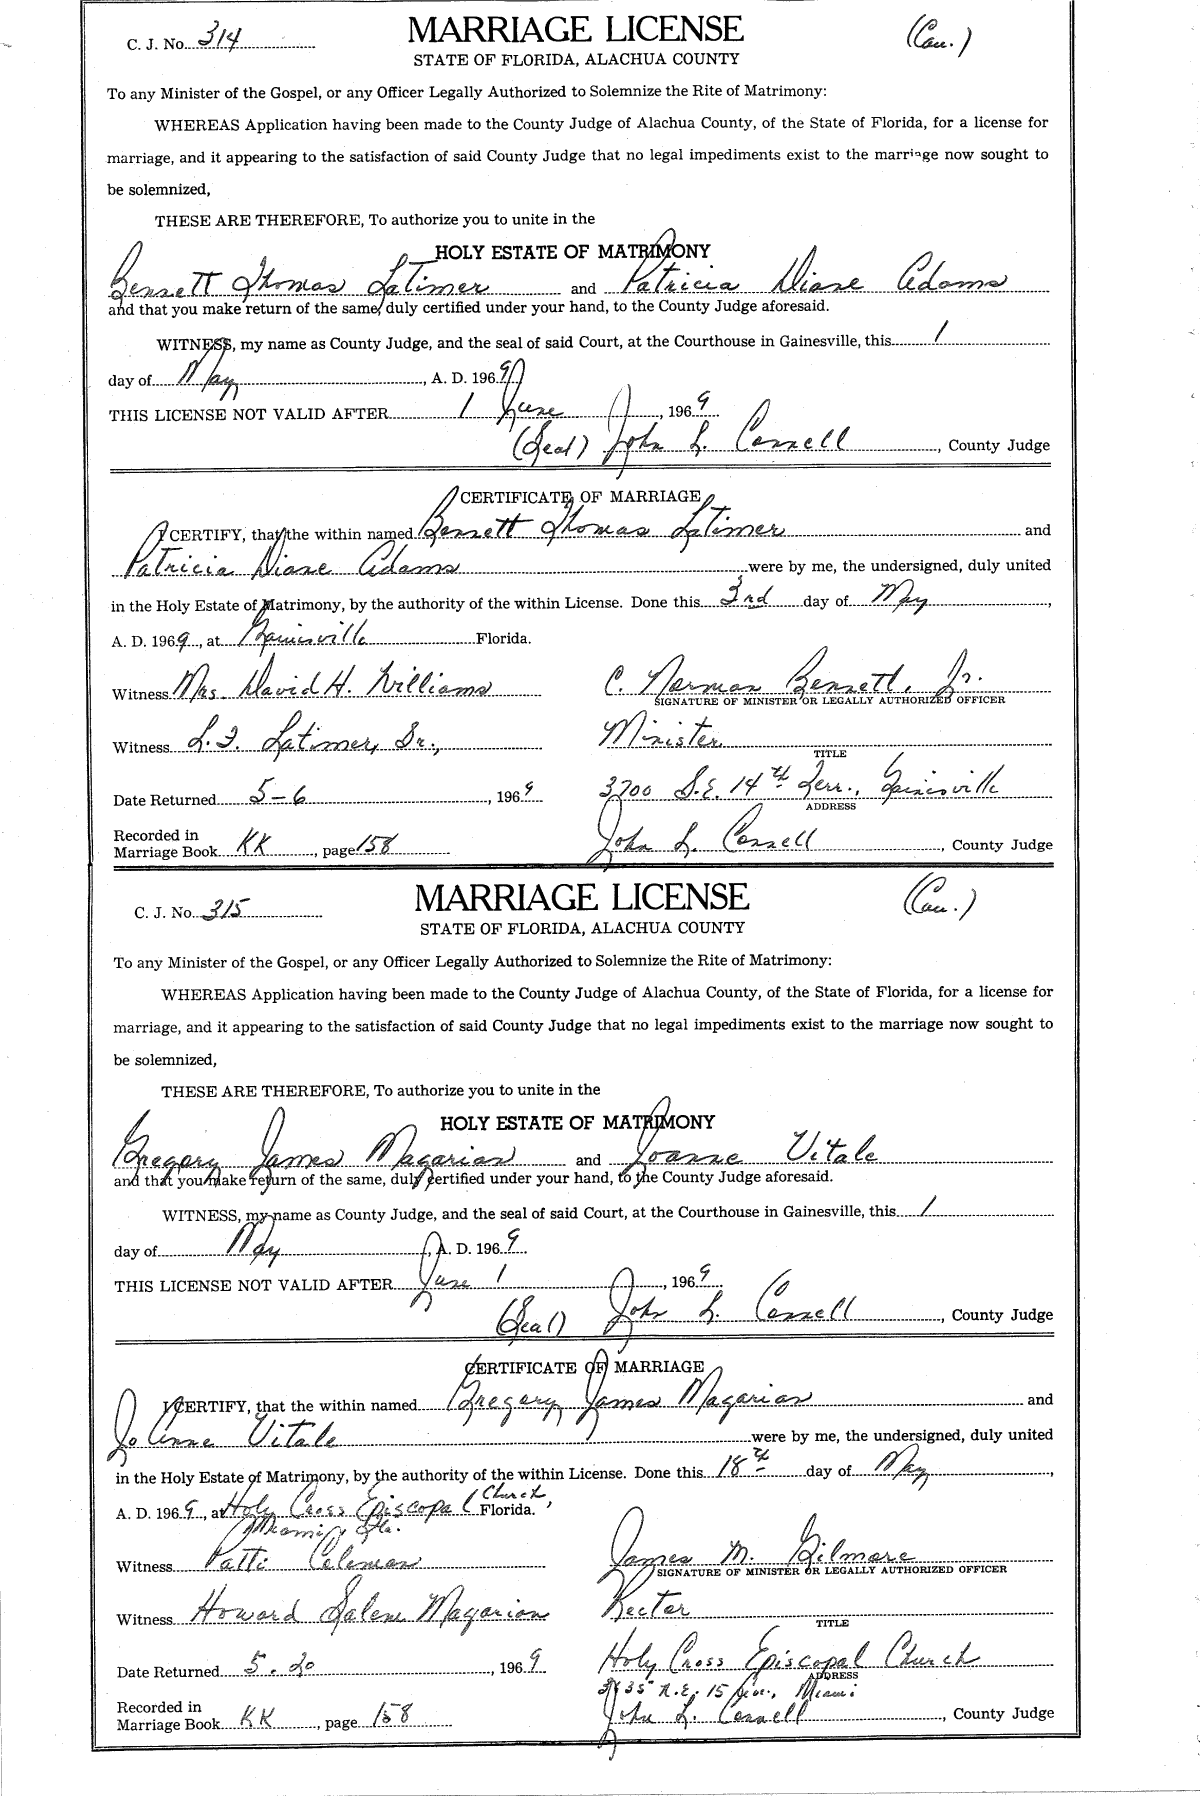 C. J. No. 314 MARRIAGE LICENSE (Cau.)
STATE OF FLORIDA, ALACHUA COUNTY
To any Minister of the Gospel, or any Officer Legally Authorized to Solemnize the Rite of Matrimony:
WHEREAS Application having been made to the County Judge of Alachua County, of the State of Florida, for a license for
marriage, and it appearing to the satisfaction of said County Judge that no legal impediments exist to the marriage now sought to
be solemnized,
THESE ARE THEREFORE, To authorize you to unite in the
HOLY ESTATE OF MATRIMONY
Bennett Thomas Latimer and Patricia Diane Adams
and that you make return of the same, duly certified under your hand, to the County Judge aforesaid.
WITNESS, my name as County Judge, and the seal of said Court, at the Courthouse in Gainesville, this 1
day of May, A. D. 1969
THIS LICENSE NOT VALID AFTER 1 June, 1969
(Seal) John L. Connell, County Judge
CERTIFICATE OF MARRIAGE
I CERTIFY, that the within named Bennett Thomas Latimer and
Patricia Diane Adams were by me, the undersigned, duly united
in the Holy Estate of Matrimony, by the authority of the within License. Done this 3rd day of May,
A. D. 1969, at Gainesville Florida.
Witness Mrs. David H. Williams C. Norman Bennett, Jr.
SIGNATURE OF MINISTER OR LEGALLY AUTHORIZED OFFICER
Witness L. F. Latimer, Sr., Minister
TITLE
Date Returned 5-6, 1969 3700 S.E. 14th Terr., Gainesville
ADDRESS
Recorded in
Marriage Book KK, page 158 John L. Connell, County Judge
C. J. No. 315 MARRIAGE LICENSE (Cau.)
STATE OF FLORIDA, ALACHUA COUNTY
To any Minister of the Gospel, or any Officer Legally Authorized to Solemnize the Rite of Matrimony:
WHEREAS Application having been made to the County Judge of Alachua County, of the State of Florida, for a license for
marriage, and it appearing to the satisfaction of said County Judge that no legal impediments exist to the marriage now sought to
be solemnized,
THESE ARE THEREFORE, To authorize you to unite in the
HOLY ESTATE OF MATRIMONY
Gregory James Magarian and Joanne Vitale
and that you make return of the same, duly certified under your hand, to the County Judge aforesaid.
WITNESS, my name as County Judge, and the seal of said Court, at the Courthouse in Gainesville, this 1
day of May, A. D. 1969
THIS LICENSE NOT VALID AFTER June 1, 1969
(Seal) John L. Connell, County Judge
CERTIFICATE OF MARRIAGE
I CERTIFY, that the within named Gregory James Magarian and
Jo Anne Vitale were by me, the undersigned, duly united
in the Holy Estate of Matrimony, by the authority of the within License. Done this 18th day of May,
A. D. 1969, at Holy Cross Episcopal Church, Florida.
Miami, Fla.
Witness Patti Coleman James M. Gilmore
SIGNATURE OF MINISTER OR LEGALLY AUTHORIZED OFFICER
Witness Howard Salene Magarian Rector
TITLE
Date Returned 5.20, 1969 Holy Cross Episcopal Church
ADDRESS
N.E. 15 Ave., Miami
Recorded in
Marriage Book KK, page 158 John L. Connell, County Judge